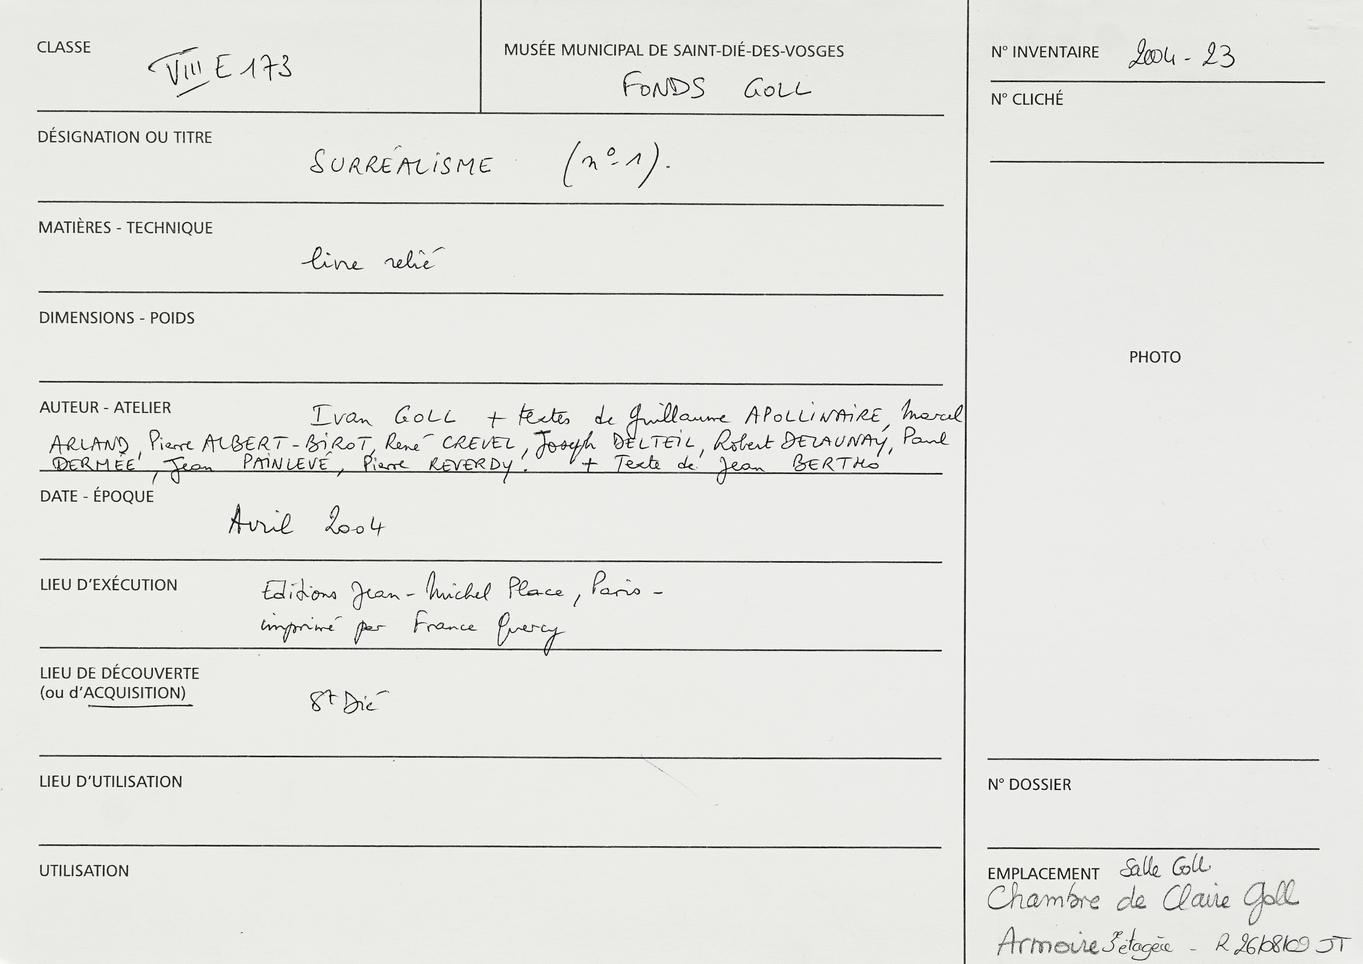 CLASSE
VIII E 173
MUSÉE MUNICIPAL DE SAINT-DIÉ-DES-VOSGES
FONDS GOLL
N° INVENTAIRE 2004 - 23
N° CLICHÉ
DÉSIGNATION OU TITRE
SURRÉALISME (n° 1).
MATIÈRES - TECHNIQUE
livre relié
DIMENSIONS - POIDS
PHOTO
AUTEUR - ATELIER Ivan GOLL + textes de Guillaume APOLLINAIRE, Marcel
ARLAND, Pierre ALBERT-BIROT, René CREVEL, Joseph DELTEIL, Robert DELAUNAY, Paul
DERMÉE, Jean PAINLEVÉ, Pierre REVERDY. + Texte de Jean BERTHO
DATE - ÉPOQUE
Avril 2004
LIEU D'EXÉCUTION
Editions Jean-Michel Place, Paris -
imprimé par France Quercy
LIEU DE DÉCOUVERTE
(ou d'ACQUISITION)
St Dié
LIEU D'UTILISATION
UTILISATION
N° DOSSIER
EMPLACEMENT Salle Goll
Chambre de Claire Goll
Armoire 3e étagère - R 26/08/09 JT